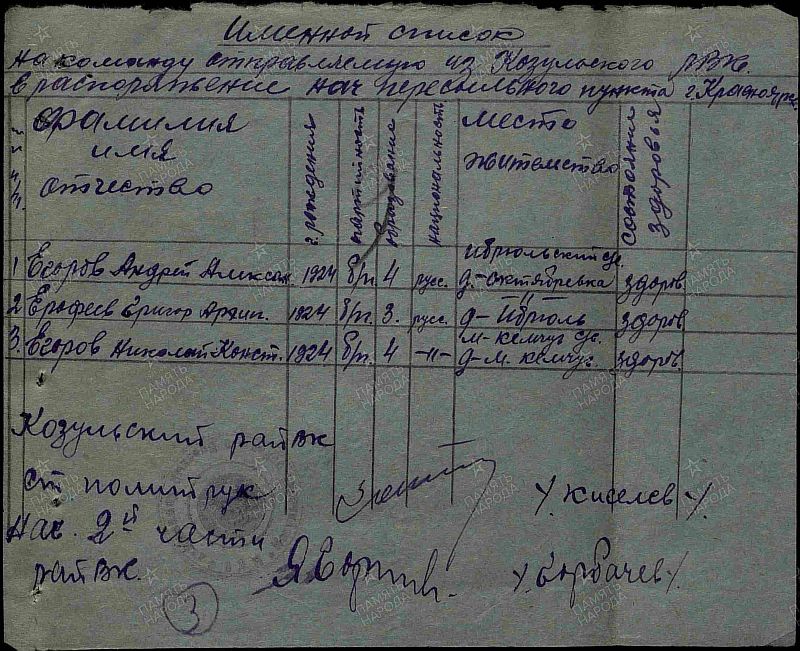 Именной список
на команду отправляемую из Козульского РВК.
в распоряжение нач пересыльного пункта г. Красноярс.
Фамилия имя отчество г. рождения партийность образование национальность место жительство состояния здоровья
1 Егоров Андрей Алексан. 1924 б/п. 4 русс. Ибрюльский с/с. д.-Октябревка здоров
2 Ерофеев Григор 1924 б/п. 3. русс. д- Ибрюль здоров
3. Егоров Николай Конст. 1924. б/п. 4 -"- М- Кемчуг с/с. д-М. Кемчуг. здоров
Козульский райвк
ст политрук /Киселев/.
Нач. 2й части
райвк. /Горбачев/.
3
ПАМЯТЬ НАРОДА